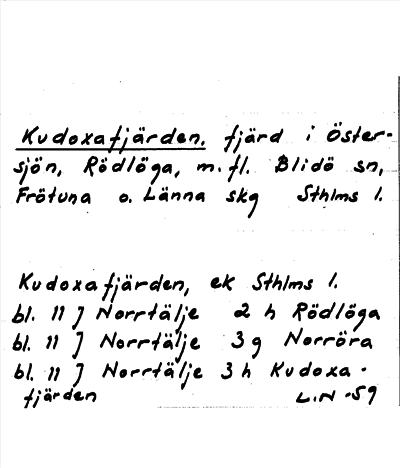 Kudoxafjärden, fjärd i Öster-
sjön, Rödlöga, m.fl. Blidö sn,
Frötuna o. Länna skg Sthlms l.
Kudoxafjärden, ek Sthlms l.
bl. 11 J Norrtälje 2 h Rödlöga
bl. 11 J Norrtälje 3 g Norröra
bl. 11 J Norrtälje 3 h Kudoxa-
fjärden L.N -59